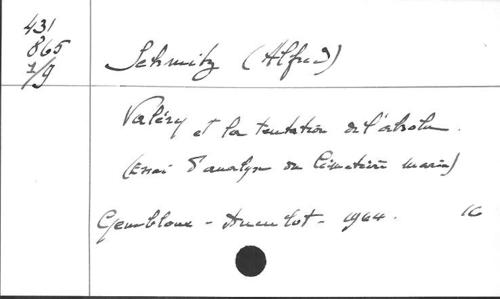 431
865
1/9
Schmitz (Alfred)
Valéry et la tentation de l'absolu.
(Essai d'analyse du Cimetière marin)
Gembloux - Duculot - 1964. 16